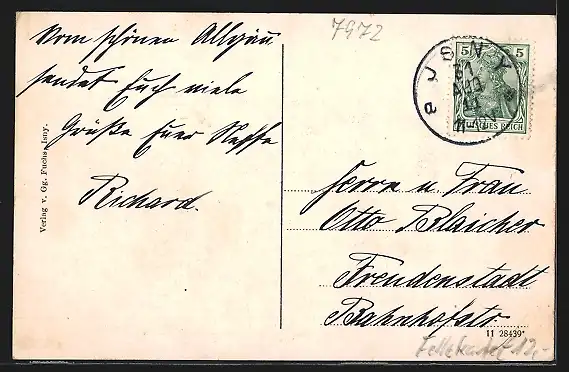 7972
Vom schönen Allgäu
sendet Euch viele
Grüße Euer Neffe
Richard.
Verlag v. Gg. Fuchs, Isny.
JSNY
5 5
DEUTSCHES REICH
Herrn u. Frau
Otto Blaicher
Freudenstadt
Bahnhofstr
11 28439*